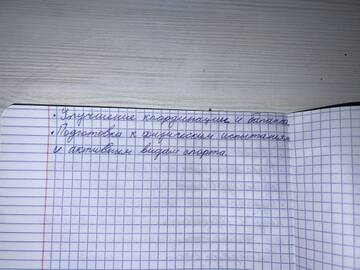 · Улучшение координации и баланса
· Подготовка к физическим испытаниям
и активным видам спорта.